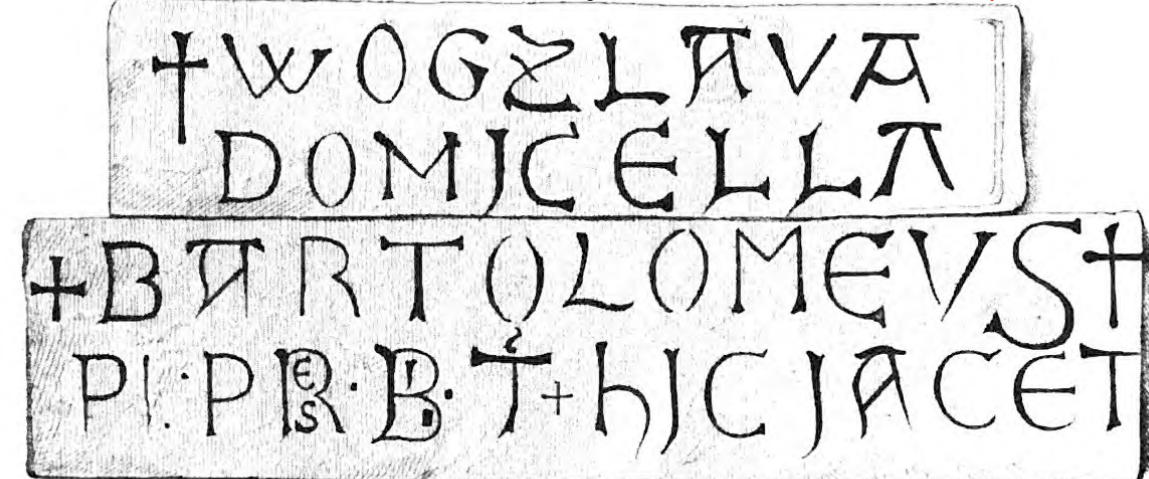 † WOGZLAVA
DOMJCELLA
+ BARTOLOMEVS †
PI · PRES · T + hJC JACET